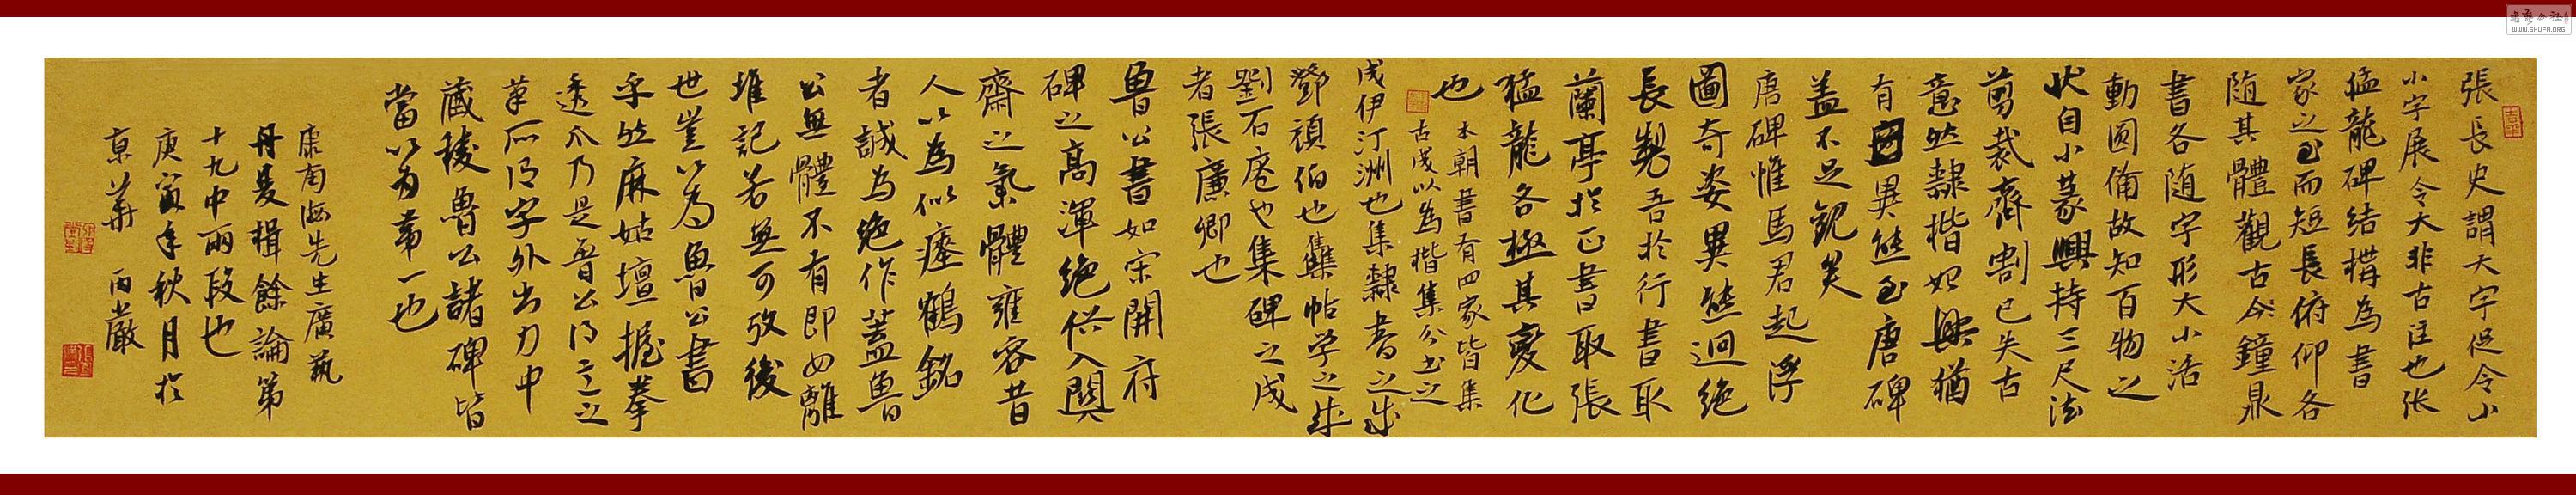 張長史謂大字促令小
小字展令大非古法也张
猛龍碑结構為書
家之至而短長俯仰各
随其體觀古今鐘鼎
書各随字形大小活
動圆備故知百物之
状自小篆興持三尺法
剪裁齊割已失古
意然隸楷始興猶
有異態至唐碑
盖不足觀矣
唐碑惟馬君起浮
圖奇姿異態迥绝
長製吾於行書取
蘭亭於正書取張
猛龍各極其變化
也
本朝書有四家皆集
古成以為楷集分书之
成伊汀洲也集隸書之成
鄧頑伯也集帖学之成
劉石庵也集碑之成
者張廉卿也
魯公書如宋開府
碑之高渾绝俗入闕
齋之氣體雍容昔
人以為似瘞鶴銘
者誠為绝作蓋魯
公無體不有即如離
堆記若無可攷後
世豈以為魯公書
乎然麻姑壇握拳
透爪乃是魯公得意之
笔所谓字外出力中
藏稜魯公諸碑皆
當以為第一也
康南海先生廣藝
舟雙楫餘論第
十九中兩段也
庚寅年秋月於
京華 丙嚴
WWW.SHUFA.ORG